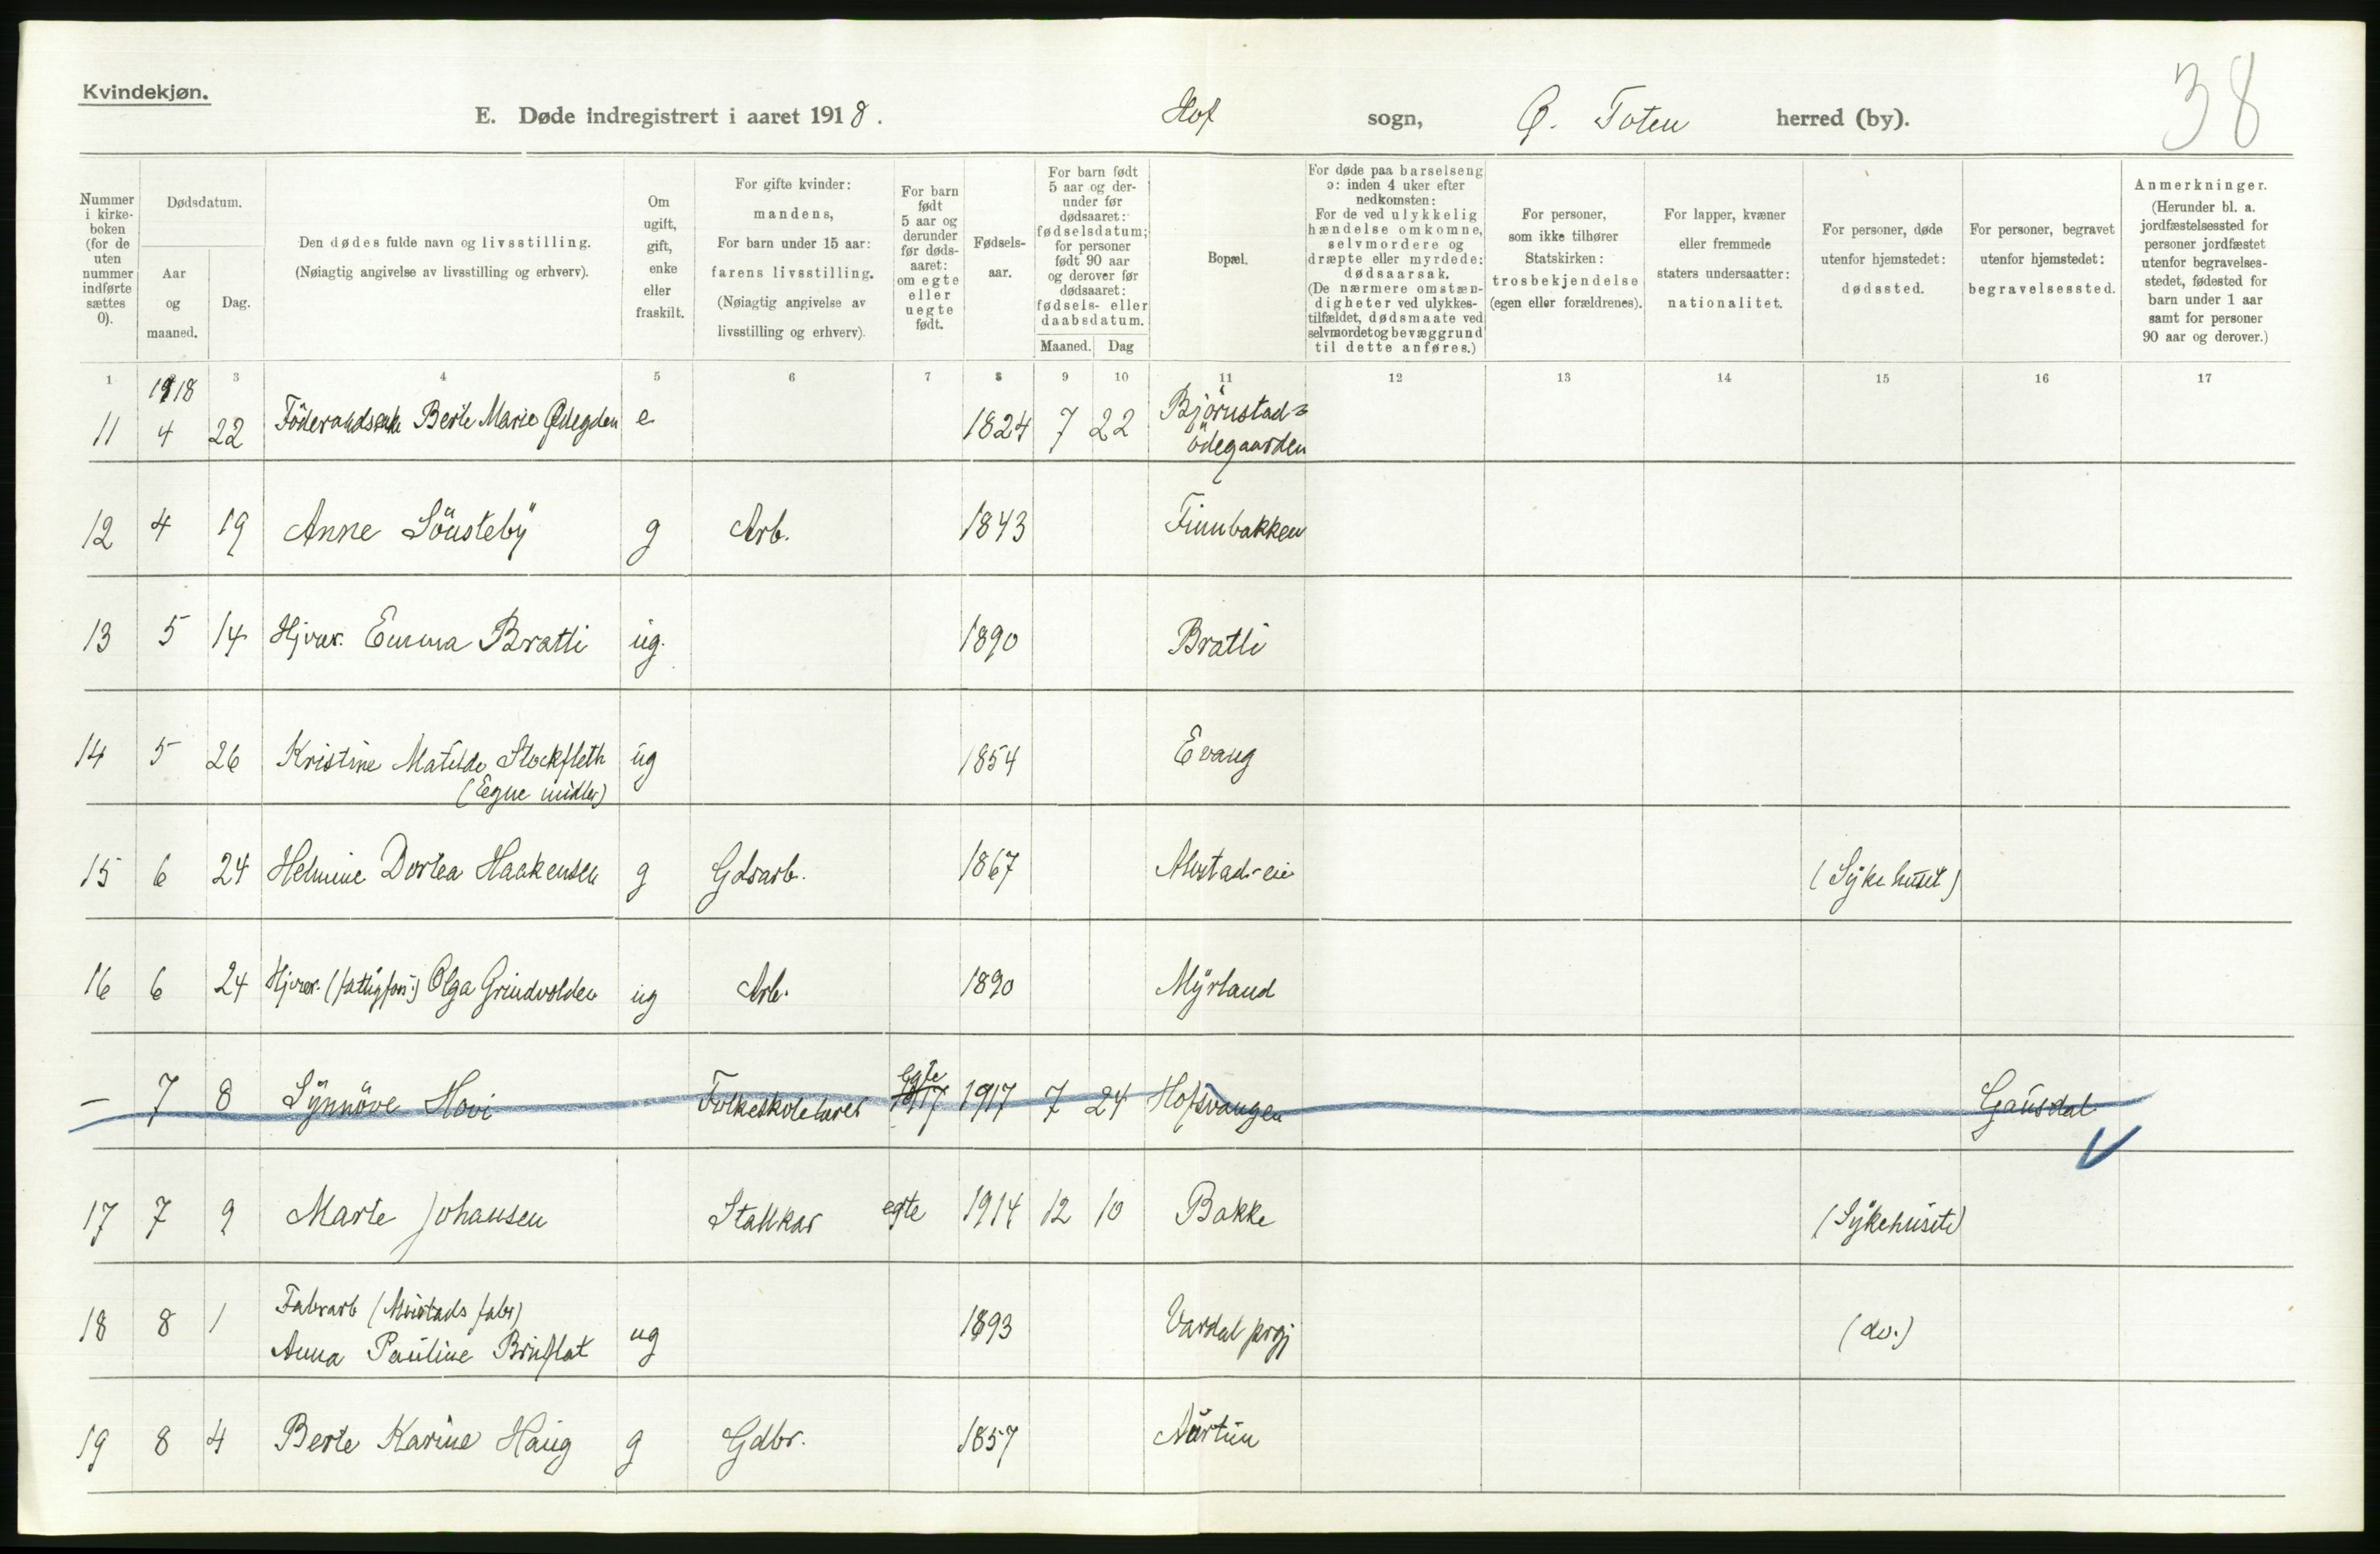 Kvindekjøn.
38
E. Døde indregistrert i aaret 1918. Hof sogn, Ø. Toten herred (by).
Nummer i kirke-boken (for de uten nummer indførte sættes 0).
Dødsdatum.
Aar og maaned.
Dag.
Den dødes fulde navn og livsstilling.
(Nøiagtig angivelse av livsstilling og erhverv).
Om ugift, gift, enke eller fraskilt.
For gifte kvinder: mandens,
For barn under 15 aar: farens livsstilling.
(Nøiagtig angivelse av livsstilling og erhverv).
For barn født 5 aar og derunder før døds-aaret: om egte eller uegte født.
Fødsels-aar.
For barn født 5 aar og der-under før dødsaaret: fødselsdatum; for personer født 90 aar og derover før dødsaaret: fødsels- eller daabsdatum.
Maaned. Dag
Bopæl.
For døde paa barselseng ɔ: inden 4 uker efter nedkomsten:
For de ved ulykkelig hændelse omkomne, selvmordere og dræpte eller myrdede: dødsaarsak.
(De nærmere omstæn-digheter ved ulykkes-tilfældet, dødsmaate ved selvmordet og bevæggrund til dette anføres.)
For personer, som ikke tilhører Statskirken: trosbekjendelse (egen eller forældrenes).
For lapper, kvæner eller fremmede staters undersaatter: nationalitet.
For personer, døde utenfor hjemstedet: dødssted.
For personer, begravet utenfor hjemstedet: begravelsessted.
Anmerkninger.
(Herunder bl. a. jordfæstelsessted for personer jordfæstet utenfor begravelses-stedet, fødested for barn under 1 aar samt for personer 90 aar og derover.)
1 3 4 5 6 7 8 9 10 11 12 13 14 15 16 17
1918
11 4 22 Föderaadsenke Berte Marie Ødegden e 1824 7 22 Björnstad-
ödegaarden
12 4 19 Anne Sönsteby g Arb. 1843 Finnbakken
13 5 14 Hjvær. Emma Bratli ug. 1890 Bratli
14 5 26 Kristine Matilde Stockfleth ug 1854 Evang
(Egne midler)
15 6 24 Helmine Dortea Haakensen g Gdsarb. 1867 Alvstad-eie (Sykehuset)
16 6 24 Hjvær. (fattigfors.) Olga Grindvolden ug Arb. 1890 Myrland
egte
– 7 8 Synnöve Hovi Folkeskolelærer 1917 1917 7 24 Hofsvangen Gausdal
17 7 9 Marie Johansen Stallkar egte 1914 12 10 Bakke (Sykehuset)
18 8 1 Fabrarb (Mustads fabr)
Anna Pauline Bruflat ug 1893 Vardal prgj (do.)
19 8 4 Berte Karine Haug g Gdbr. 1857